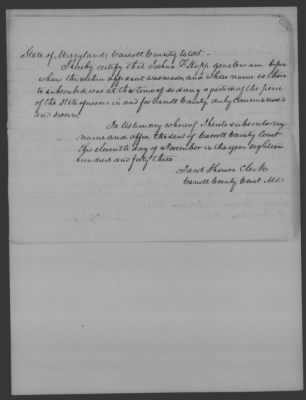 State of Maryland, Carroll County to wit.
I hereby certify that Joshua F. Kopp gentleman before
whom the within affidavit was made, and whose name is there
to subscribed, was at the time of so doing a justice of the peace
of the State aforesaid in and for Carroll County duly commissioned
and sworn.
In testimony whereof I hereto subscribe my
name and affix the seal of Carroll County Court
this eleventh day of November in the year eighteen
hundred and forty three
Jacob Shower Clerk
Carroll County Court Md.